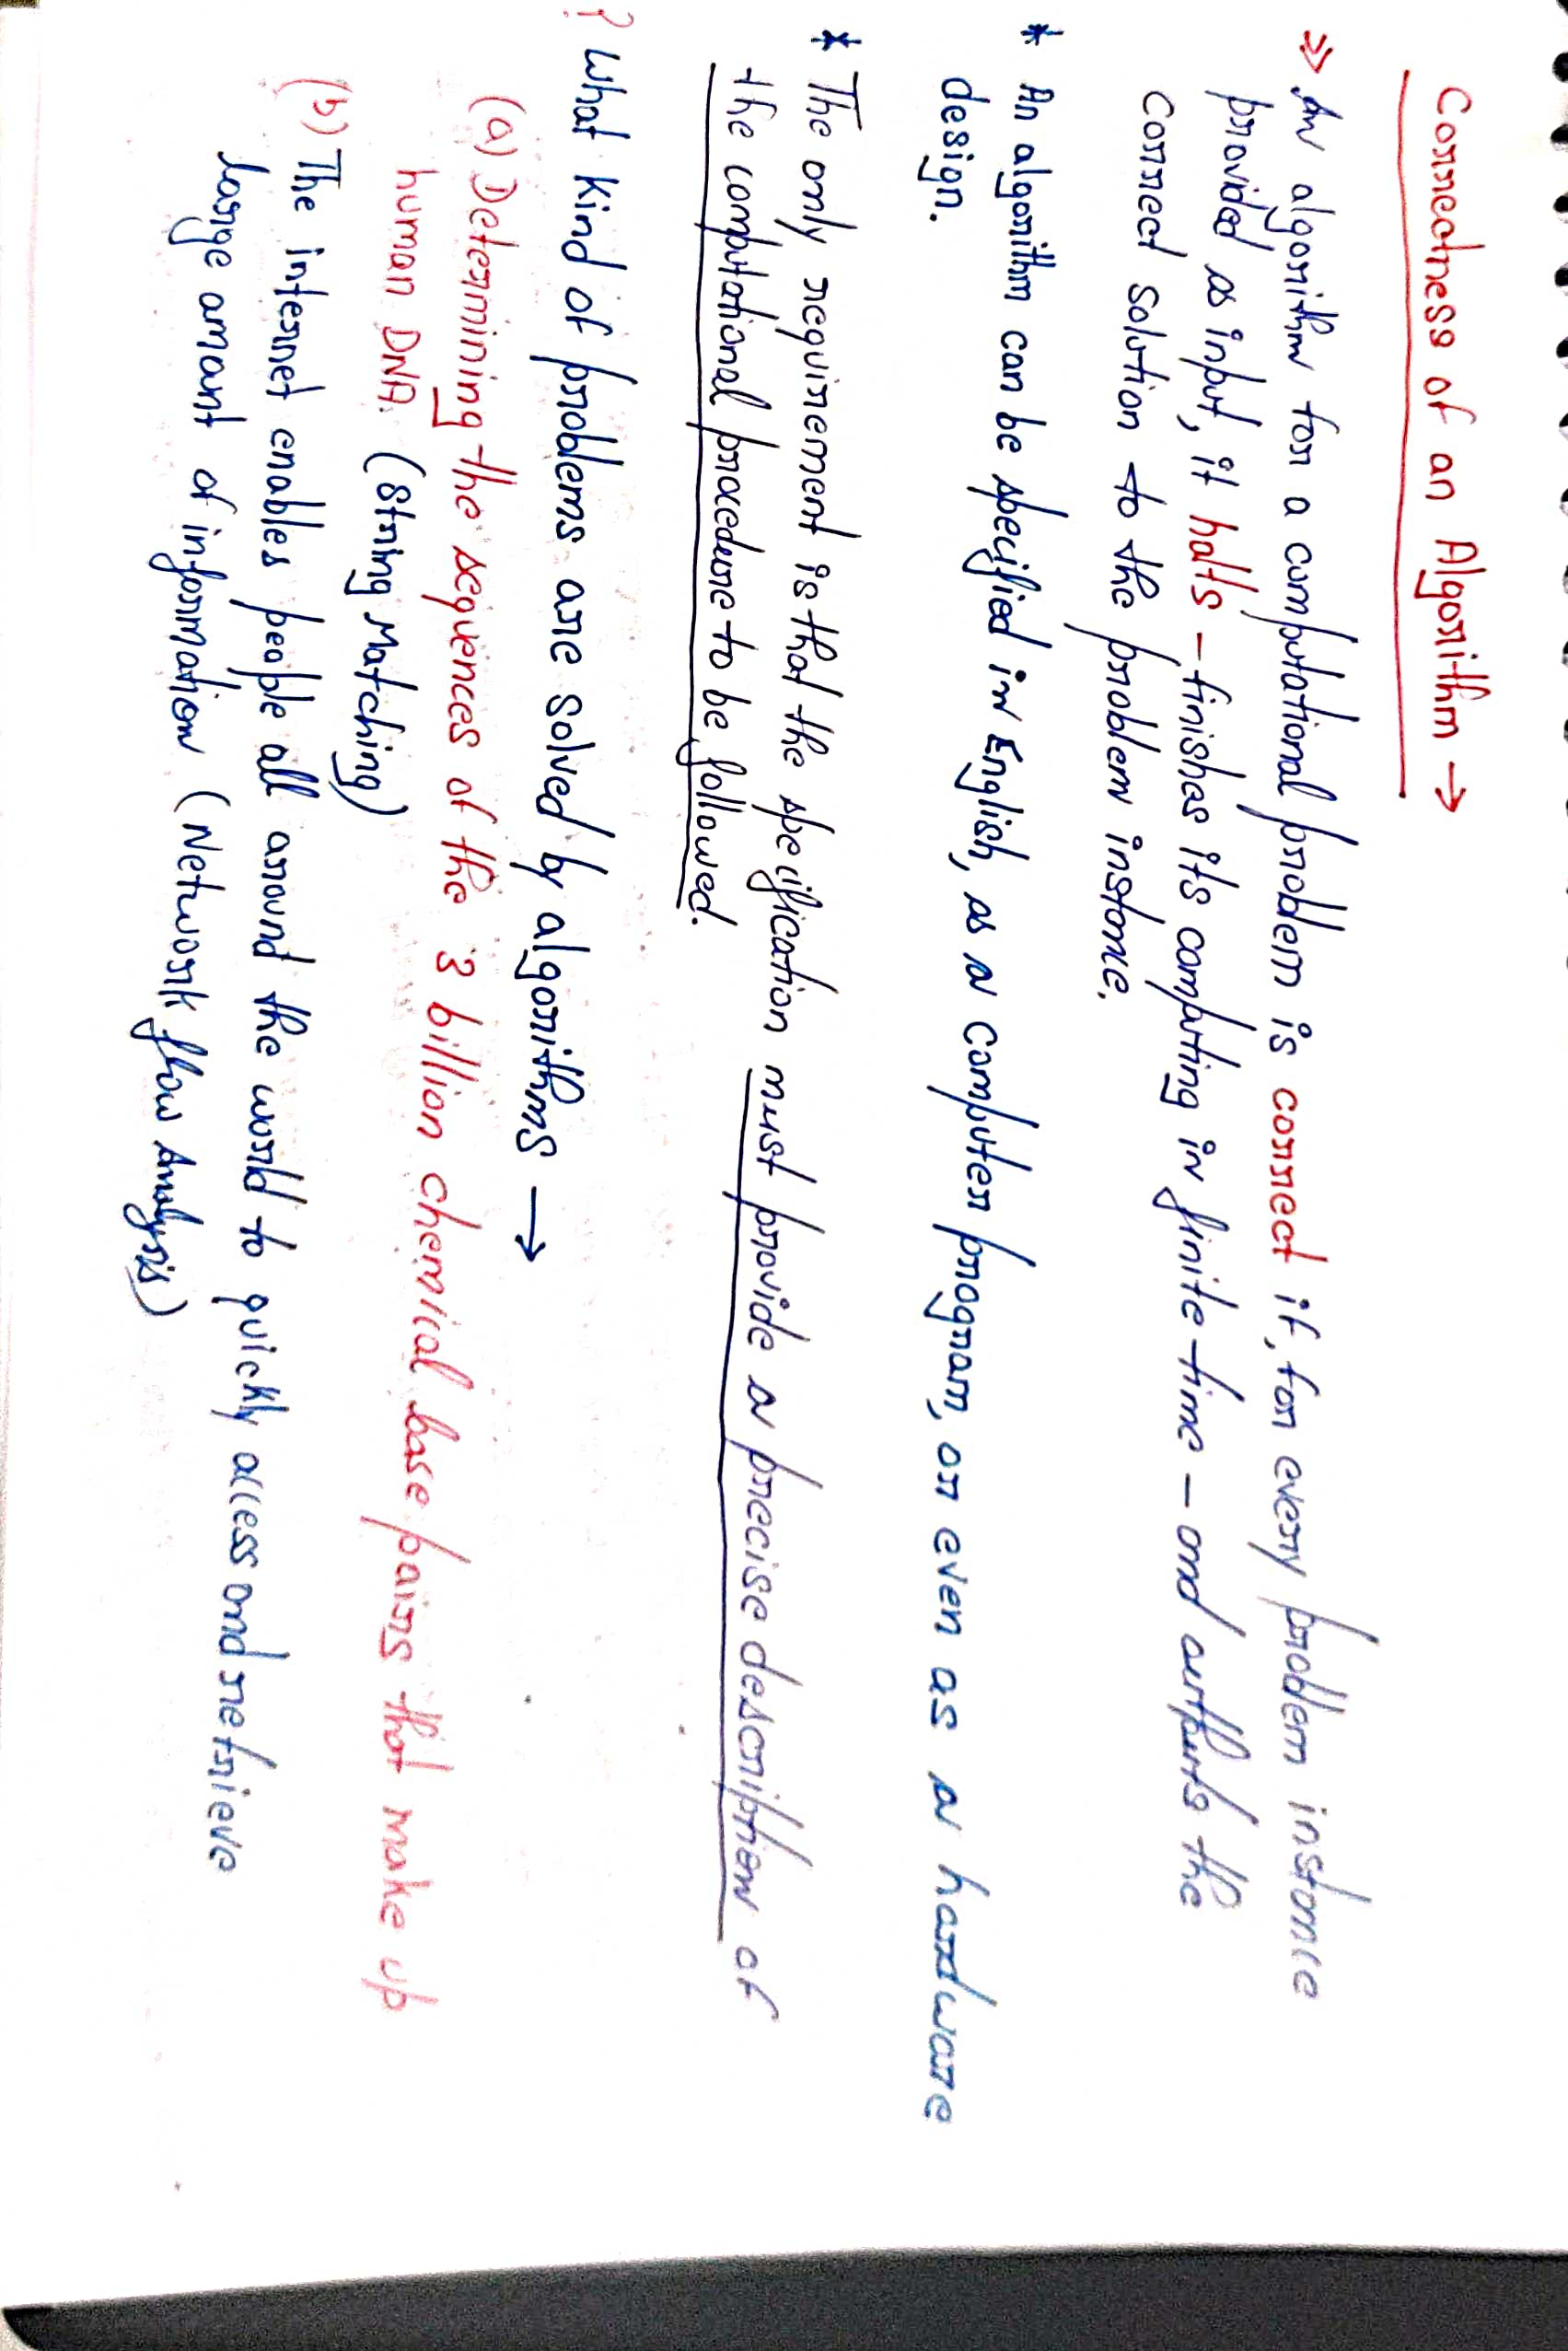 Correctness of an Algorithm →
» An algorithm for a computational problem is correct if, for every problem instance
provided as input, it halts – finishes its computing in finite time – and outputs the
correct solution to the problem instance.
* An algorithm can be specified in English, as a computer program, or even as a hardware
design.
* The only requirement is that the specification must provide a precise description of
the computational procedure to be followed.
? What kind of problems are solved by algorithms →
(a) Determining the sequences of the 3 billion chemical base pairs that make up
human DNA. (String Matching)
(b) The internet enables people all around the world to quickly access and retrieve
large amount of information (Network flow Analysis)